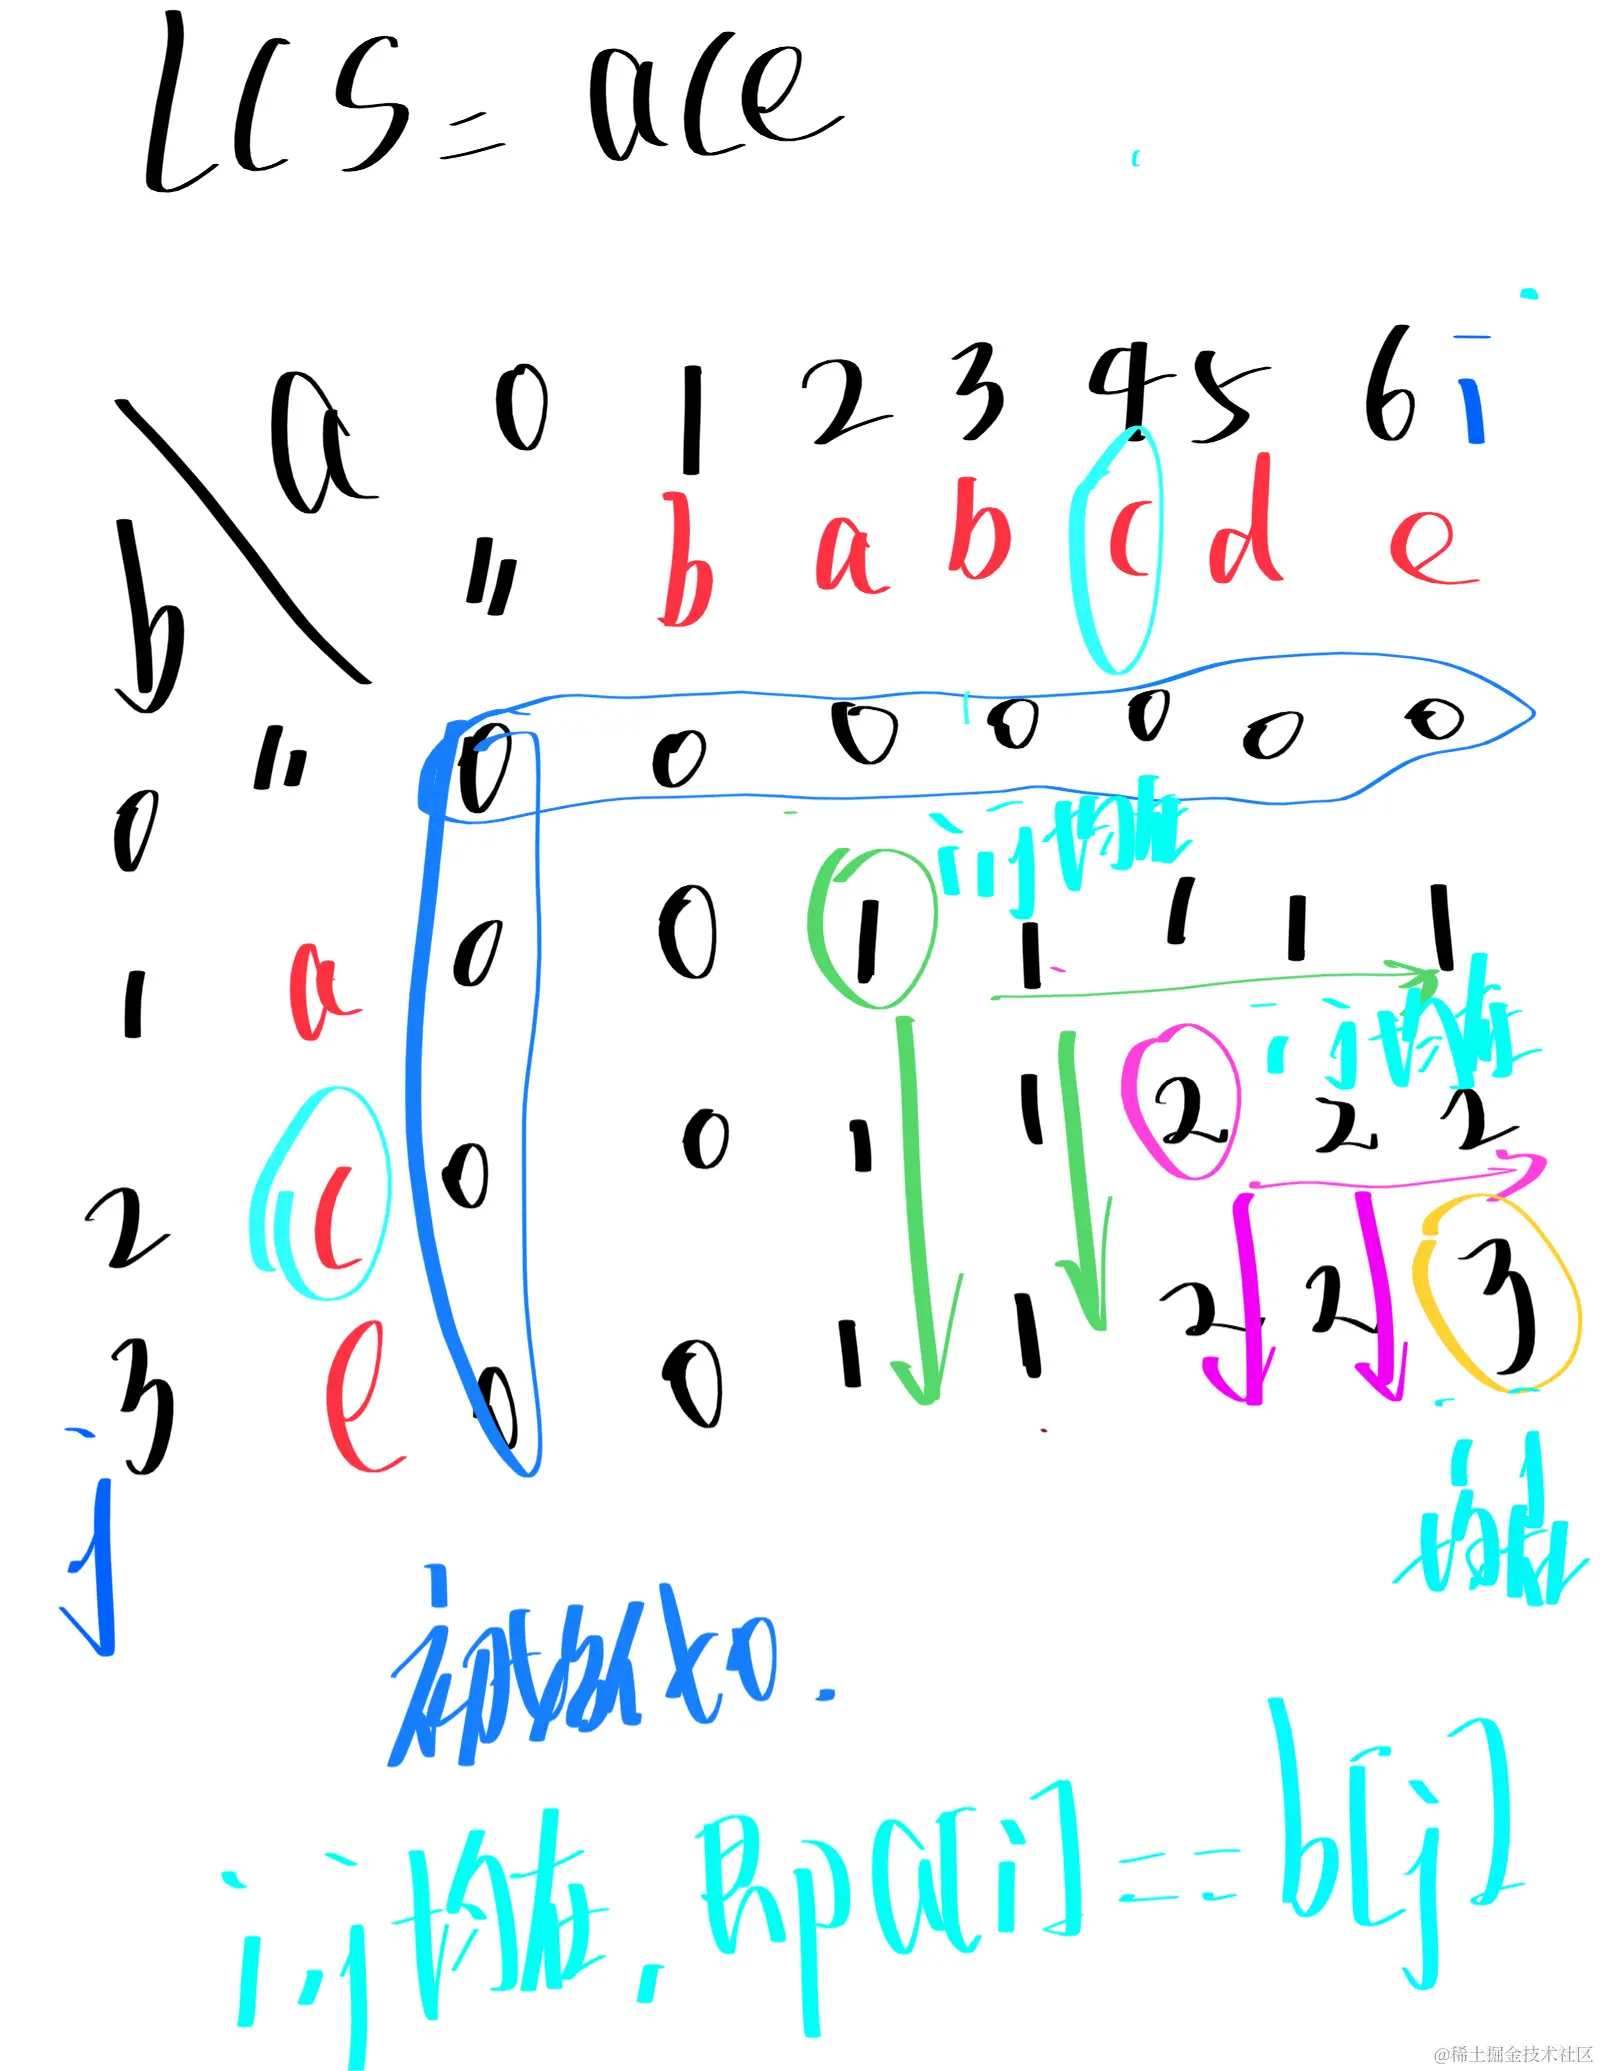 LCS = ace
a 0 1 2 3 4 5 6 i
b " b a b c d e
0 " 0 0 0 0 0 0 0
i,j均在
1 a 0 0 1 1 1 1 1
i,j均在
2 c 0 0 1 1 2 2 2
3 e 0 0 1 1 2 2 3
j
i,j
均在
初始状态.
i,j均在,即a[i]==b[j]
@稀土掘金技术社区